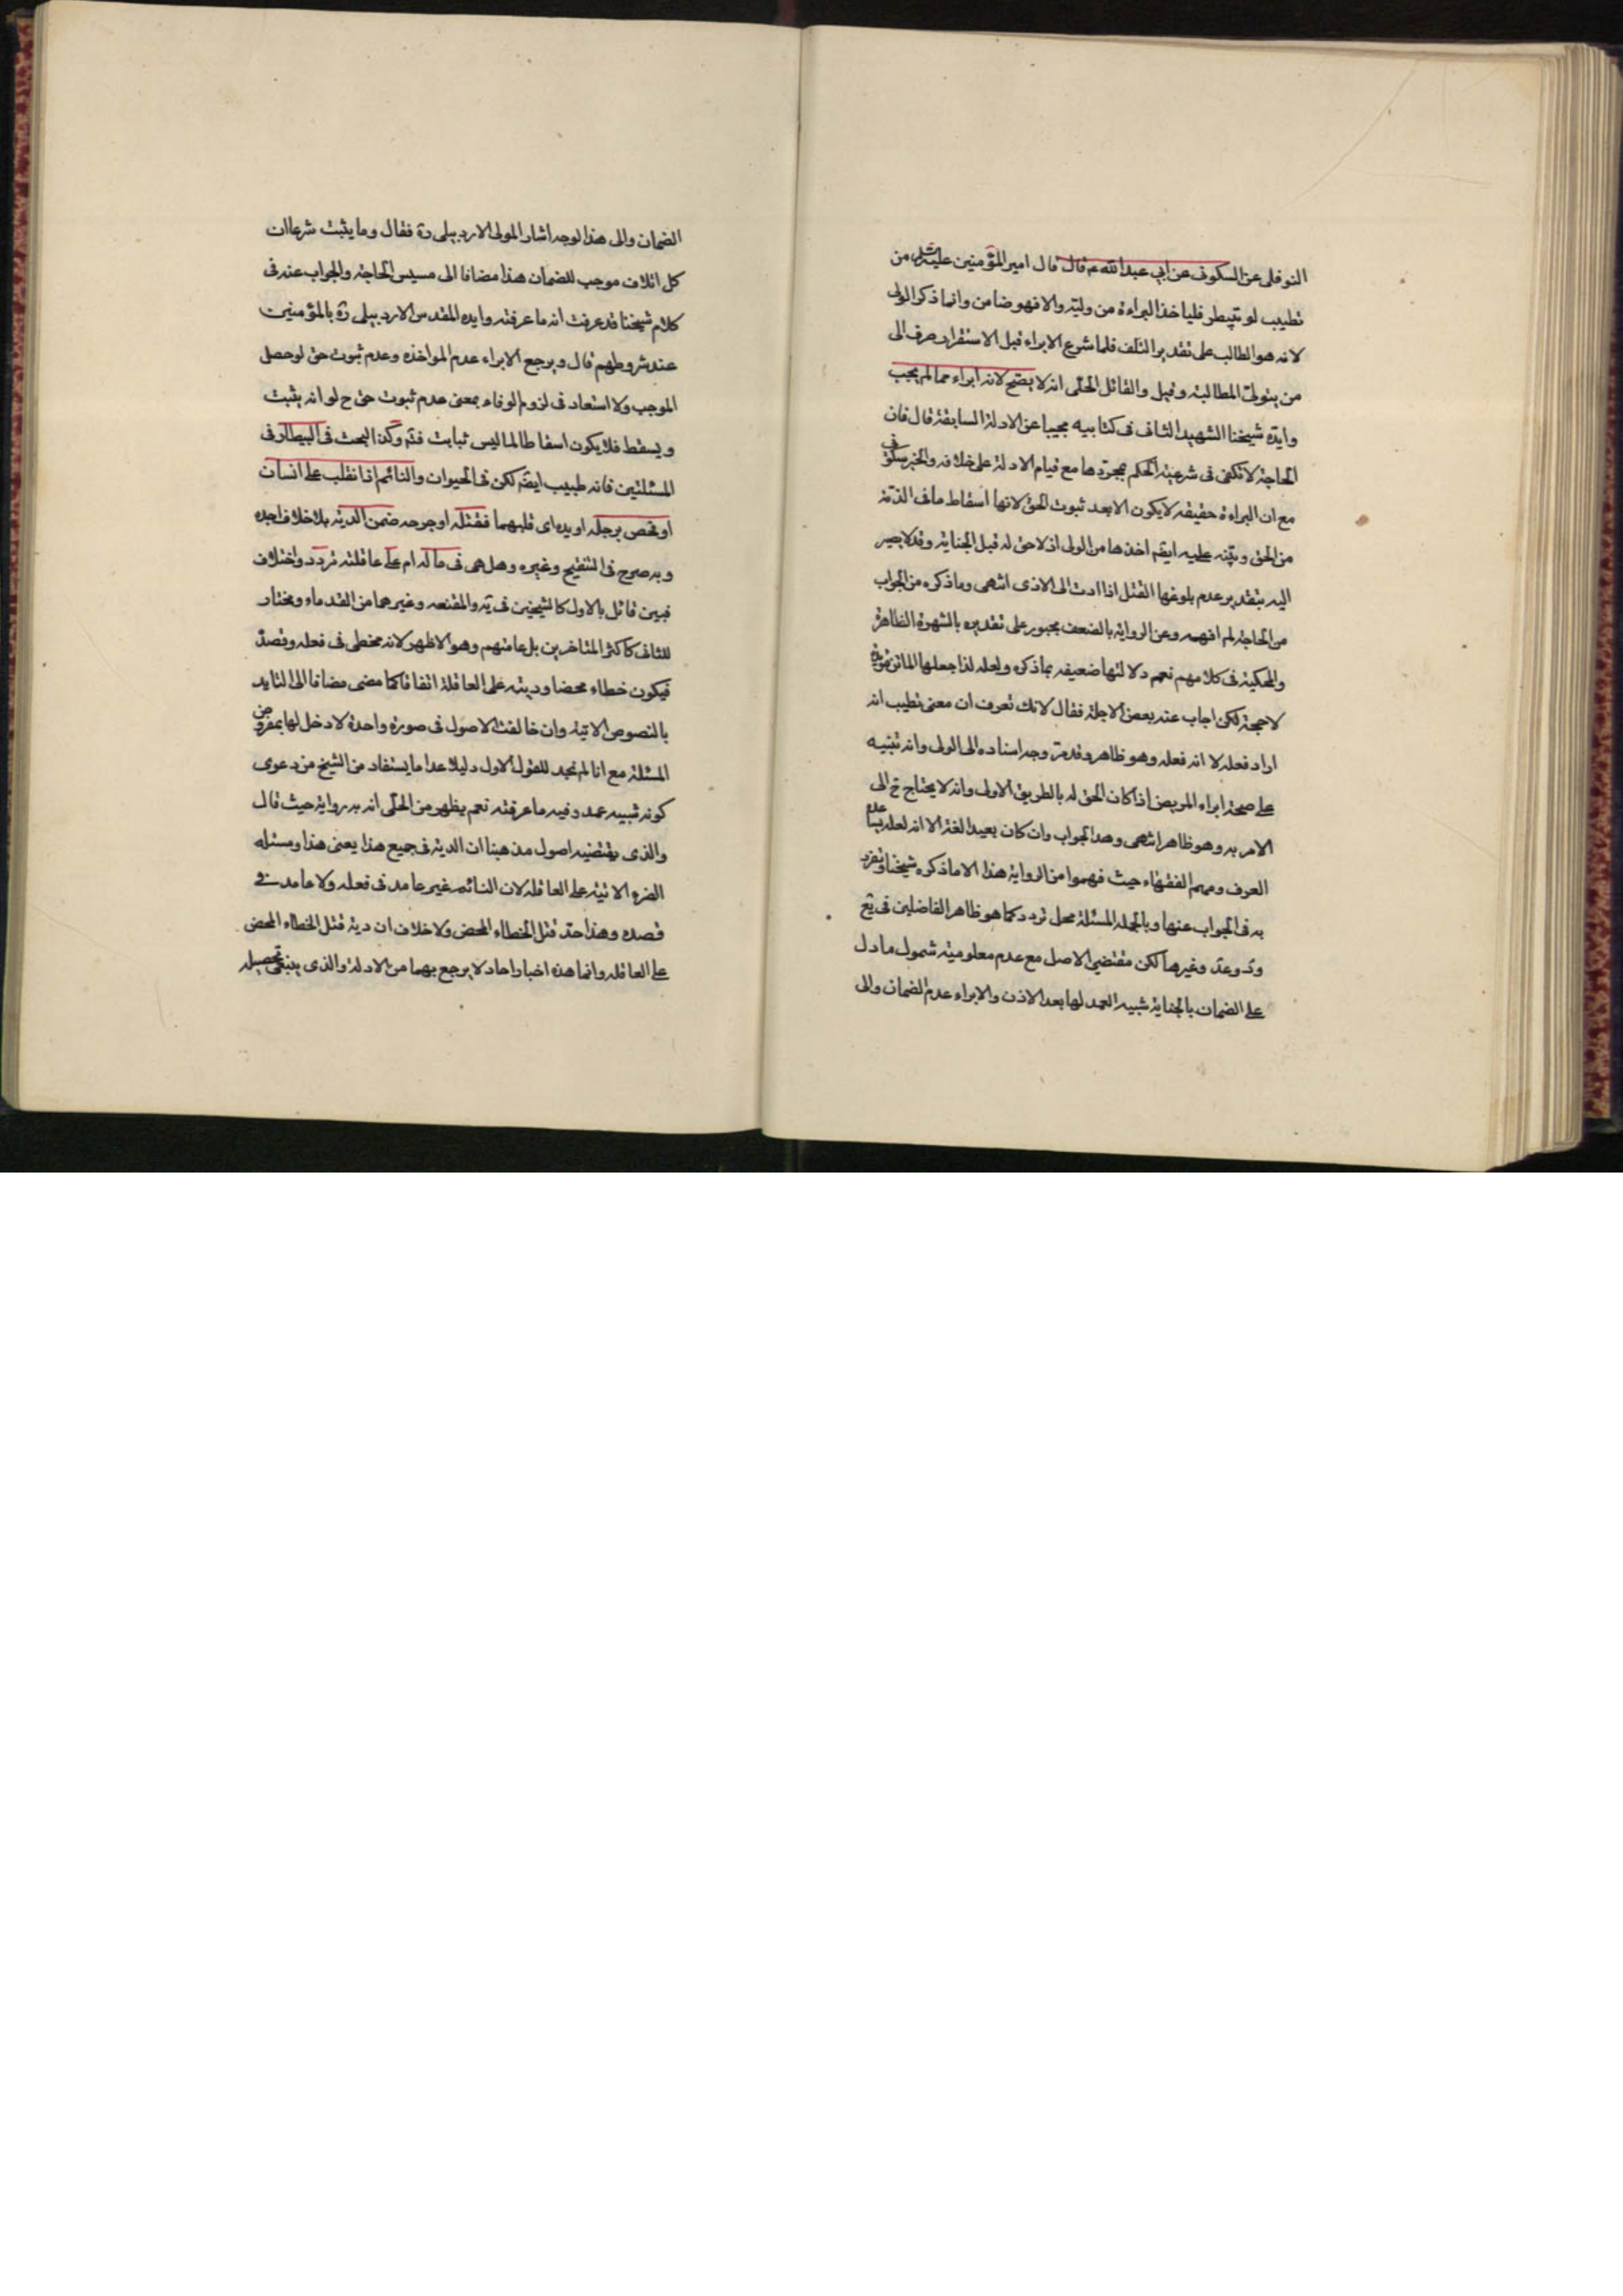 النوفلى عن السكونى عن ابى عبدالله ع قال قال امير المؤمنين عليه السلام من
تطيب او تبيطر فلياخذ البراءة من وليه والا فهو ضامن وانما ذكر الولى
لانه هو الطالب على تقدير التلف فلما شرع الابراء قبل الاستقرار صرف الى
من يتولى المطالبة وقيل والقائل الحلى انه لا يصح لانه ابراء مما لم يجب
وايده شيخنا الشهيد الثانى فى كتابيه مجيبا عن الادلة السابقة قال فان
الحاجة لا تكفى فى شرعية الحكم بمجردها مع قيام الادلة على خلافه والخبر سكونى
مع ان البراءة حقيقة لا يكون الا بعد ثبوت الحق لانها اسقاط ما فى الذمة
من الحق وينبه عليه ايضم اخذها من الولى اذ لا حق له قبل الجناية وقد لا يصير
اليه بتقدير عدم بلوغها القتل اذا ادت الى الاذى انتهى وما ذكره من الجواب
من الحاجة لم افهمه وعن الرواية بالضعف مجبور على تقديره بالشهرة الظاهرة
والمحكية فى كلامهم نعم دلالتها ضعيفه بما ذكره ولعله لذا جعلها الماتن مؤيدة
لا حجة لكن اجاب عنه بعض الاجلة فقال لانك تعرف ان معنى تطيب انه
اراد فعله لا انه فعله وهو ظاهر وقد مر وجه اسناده الى الولى وانه تنبيه
على صحة ابراء المريض اذا كان الحق له بالطريق الاولى وانه لا يحتاج ح الى
الامر به وهو ظاهر انتهى وهذا الجواب وان كان بعيدا لغة الا انه لعله
العرف ومهم الفقهاء حيث فهموا من الرواية هذا الا ما ذكره شيخنا وتفرد
به فى الجواب عنها وبالجملة المسئلة محل تردد كما هو ظاهر الفاضلين فى يع
ود وعد وغيرها لكن مقتضى الاصل مع عدم معلومية شمول ما دل
على الضمان بالجناية شبيه العمد لها بعد الاذن والابراء عدم الضمان والى
الضمان والى هذا الوجه اشار المولى الاردبيلى ره فقال وما يثبت شرعا ان
كل اتلاف موجب للضمان هذا مضافا الى مسيس الحاجة والجواب عنه فى
كلام شيخنا قد عرفت انه ما عرفته وايده المقدس الاردبيلى ره بالمؤمنين
عند شروطهم قال ويرجع الابراء عدم المواخذه وعدم ثبوت حق لو حصل
الموجب ولا استعاد فى لزوم الوفاء بمعنى عدم ثبوت حق ح لو انه يثبت
ويسقط فلا يكون اسقاطا لما ليس ثبابت فتم وكذا البحث فى البيطار فى
المسئلتين فانه طبيب ايضم لكن فى الحيوان والنائم اذا انقلب على انسان
او فحص برجله او يده اى قلبهما فقتله او جرحه ضمن الدية بلا خلاف اجده
وبه صرح فى التنقيح وغيره وهل هى فى ماله ام على عاقلته تردد واختلاف
فبين قائل بالاول كالشيخين فى يه والمقنعه وغيرهما من القدماء ومختار
للثانى كاكثر المتاخرين بل عامتهم وهو الاظهر لانه مخطى فى فعله وقصده
فيكون خطاء محضا وديته على العاقلة اتفاقا كما مضى مضافا الى التايد
بالنصوص الاتية وان خالفت الاصول فى صورة واحدة لا دخل لها بمفروض
المسئلة مع انا لم نجد للقول الاول دليلا عدا ما يستفاد من الشيخ من دعوى
كونه شبيه عمد وفيه ما عرفته نعم يظهر من الحلى انه به رواية حيث قال
والذى يقتضيه اصول مذهبنا ان الدية فى جميع هذا يعنى هذا ومسئله
الضره الاتية على العاقله لان النائم غير عامد فى فعله ولا عامد فى
قصده وهذا حد قتل الخطاء المحض ولا خلاف ان دية قتل الخطاء المحض
على العاقله وانما هذه اخبار احاد لا يرجع بهما من الادلة والذى ينبغى تحصيله